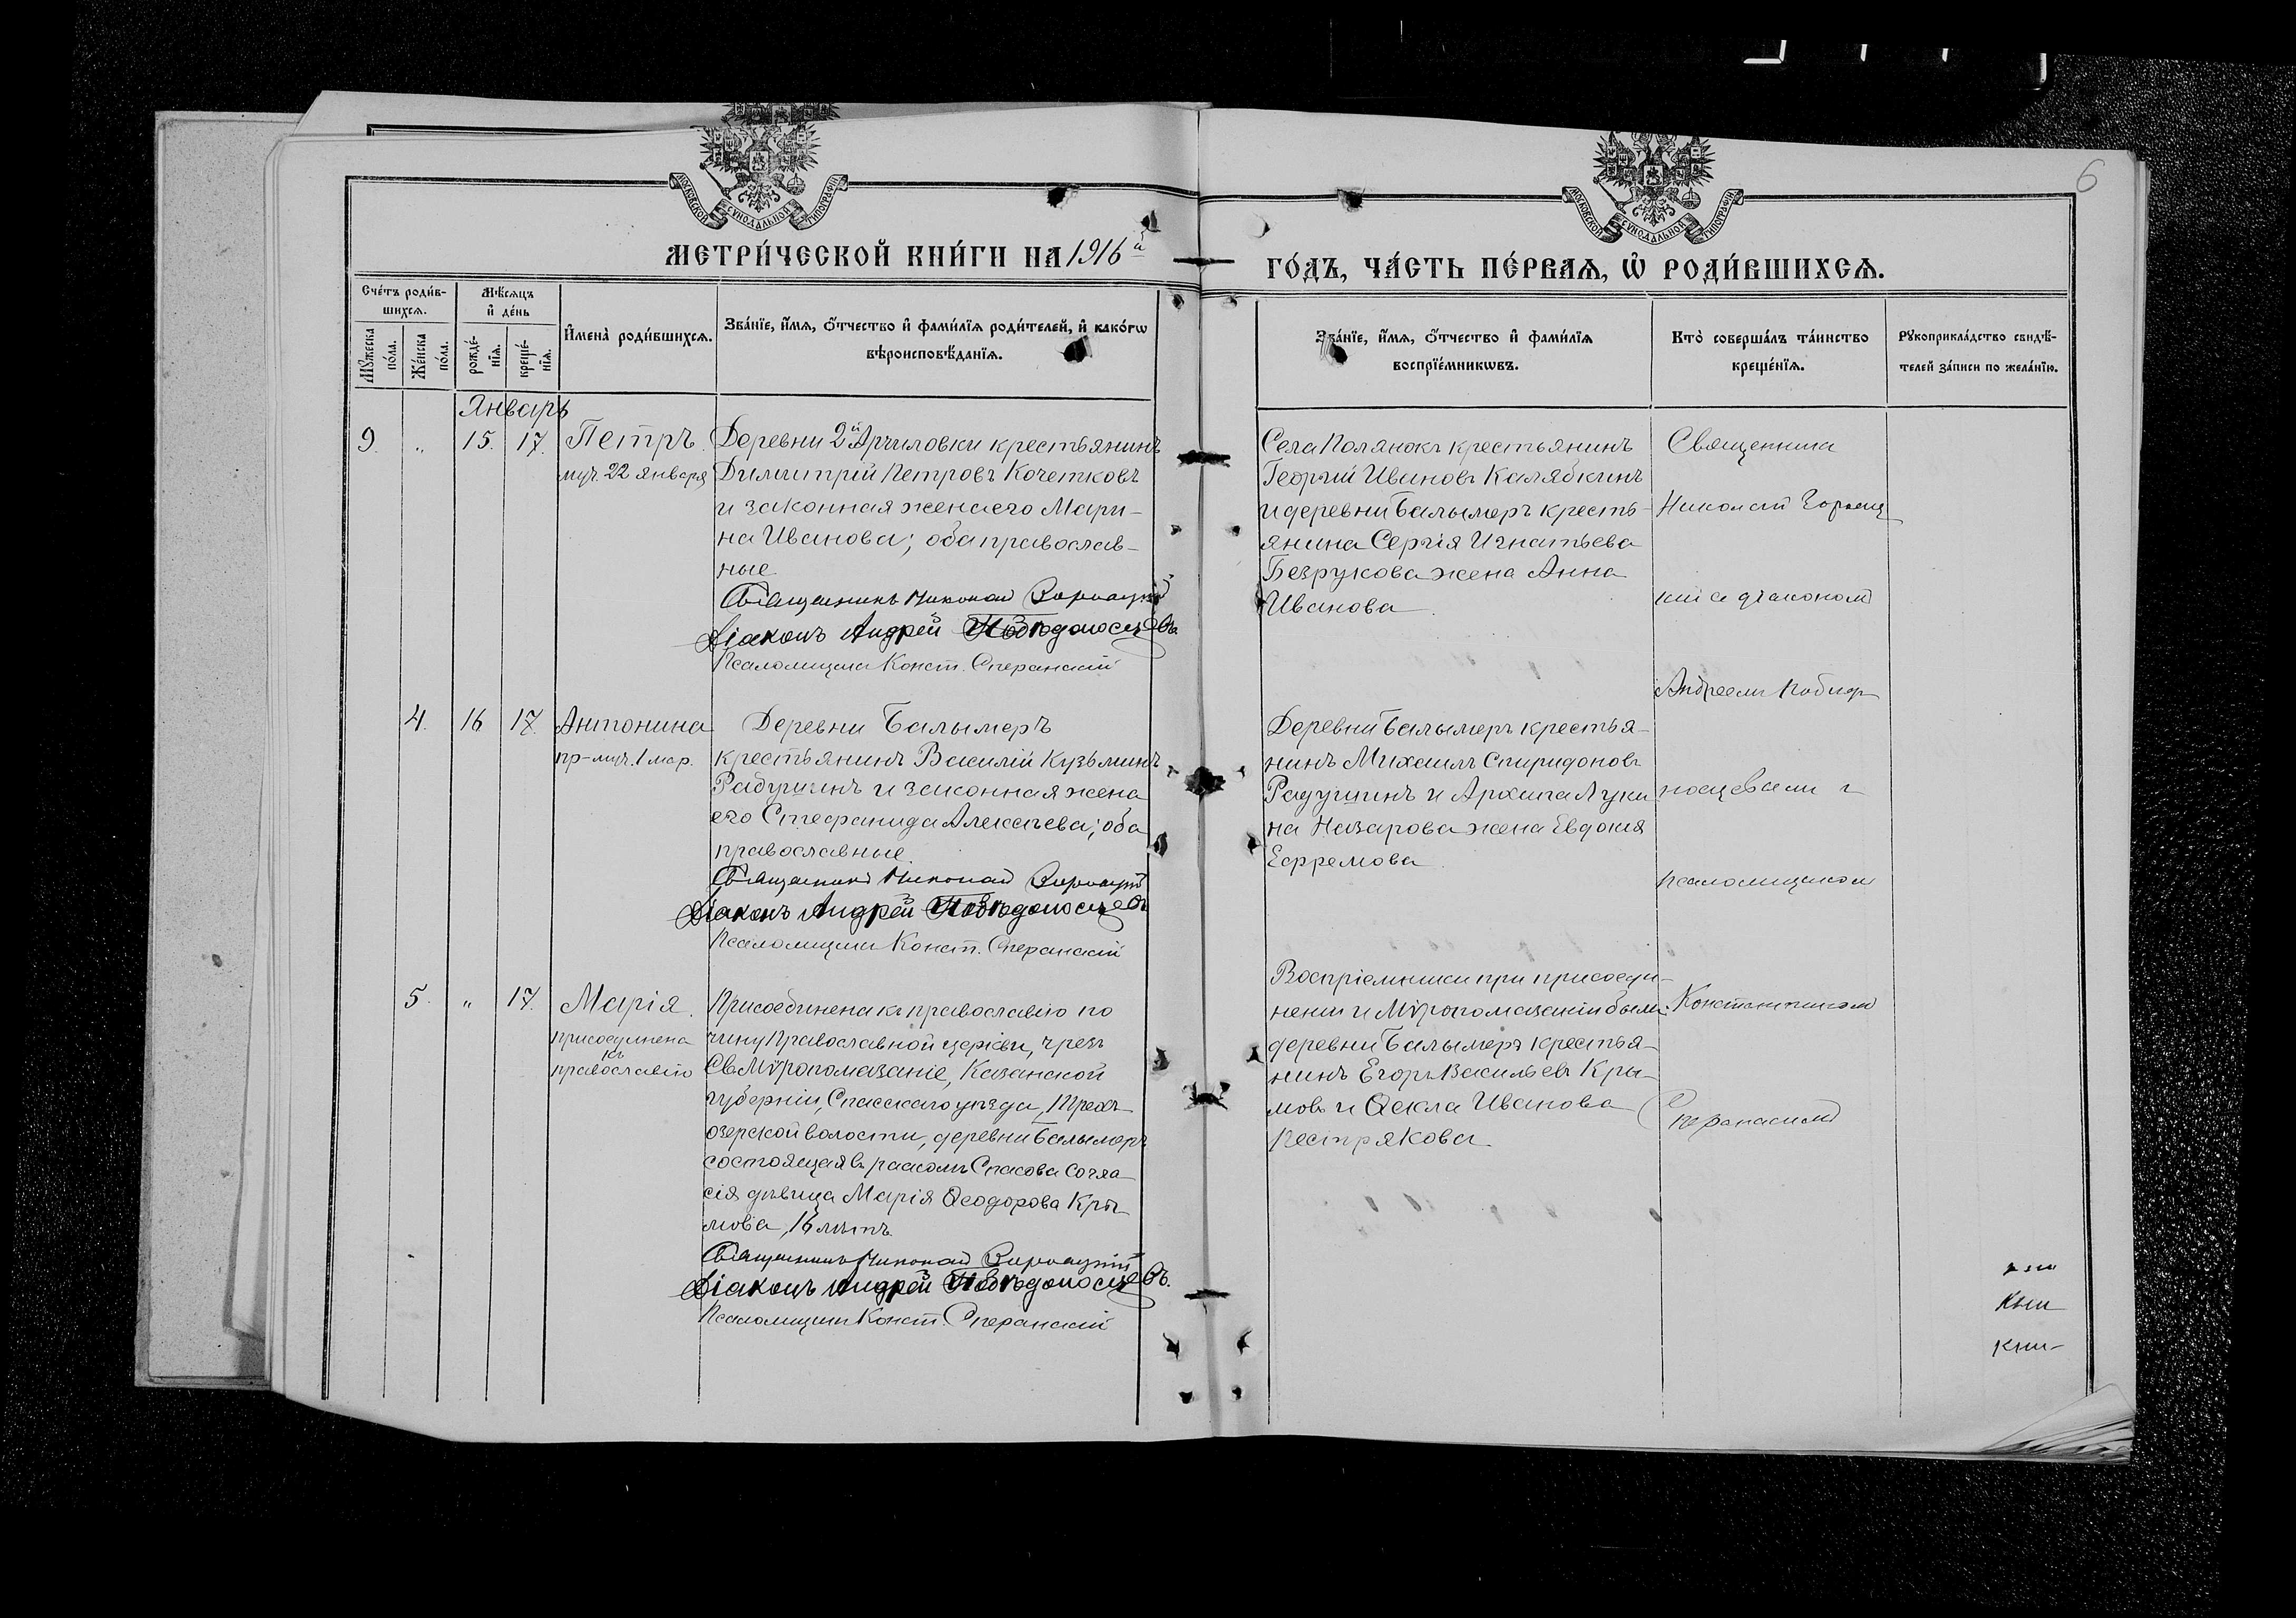 6
МОСКОВСКОЙ СѴНОДАЛЬНОЙ ТИПОГРАФІИ
МОСКОВСКОЙ СѴНОДАЛЬНОЙ ТИПОГРАФІИ
МЕТРИ́ЧЕСКОЙ КНИ́ГИ НА 1916й
ГО́ДЪ, ЧА́СТЬ ПЕ́РВАѦ, Ѽ РОДИ́ВШИХСѦ.
Сче́тъ роди́в-
шихсѧ.
Мꙋ́жеска по́ла.
Же́нска по́ла.
Мѣ́сѧцъ
и҆ де́нь
рожде́-
нїѧ.
креще́-
нїѧ.
И҆мена̀ роди́вшихсѧ.
Зва́нїе, и҆́мѧ, ѻ҆́тчество и҆ фами́лїѧ роди́телей, и҆ како́гѡ
вѣроисповѣ́данїѧ.
Зва́нїе, и҆́мѧ, ѻ҆́тчество и҆ фами́лїѧ
воспрїе́мникѡвъ.
Кто̀ соверша́лъ та́инство
креще́нїѧ.
Рꙋкоприкла́дство свидѣ́-
телей за́писи по жела́нїю.
Январь
9. „ 15. 17. Петръ.
муч. 22 января
Деревни 2й Арчиловки крестьянинъ
Димитрій Петровъ Кочетковъ
и законная жена его Мари-
на Иванова; оба православ-
ные
Священникъ Николай
Діаконъ Андрей Побѣдоносцевъ
Псаломщикъ Конст. Сперанскій
Села Полянокъ крестьянинъ
Георгій Ивановъ Калябкинъ
и деревни Балымеръ кресть-
янина Сергія Игнатьева
Безрукова жена Анна
Иванова.
Священникъ
Николай
кій съ діакономъ
Андреемъ Побѣдо-
носцевымъ и
псаломщикомъ
Константиномъ
Сперанскимъ
4. 16 17. Антонина
пр-муч. 1 мар.
Деревни Балымеръ
крестьянинъ Василій Кузьминъ
Радушинъ и законная жена
его Стефанида Алексѣева; оба
православные.
Священникъ Николай
Діаконъ Андрей Побѣдоносцевъ
Псаломщикъ Конст. Сперанскій
Деревни Балымеръ крестья-
нинъ Михаилъ Спиридоновъ
Радушинъ и Архипа Луки-
на Назарова жена Евдокія
Ефремова.
5. „ 17. Марія.
присоединена
къ
православію
Присоединена къ православію по
чину Православной церкви, чрезъ
Св. Мѵропомазаніе, Казанской
губерніи, Спасскаго уѣзда, Трехъ-
озерской волости, деревни Балымеръ
состоящая въ расколѣ Спасова согла-
сія дѣвица Марія Ѳеодорова Кры-
мова, 16 лѣтъ.
Священникъ Николай
Діаконъ Андрей Побѣдоносцевъ.
Псаломщикъ Конст. Сперанскій
Воспріемники при присоеди-
неніи и Мѵропомазаніи были:
деревни Балымеръ крестья-
нинъ Егоръ Васильевъ Кры-
мовъ и Ѳекла Иванова
Пестрякова.